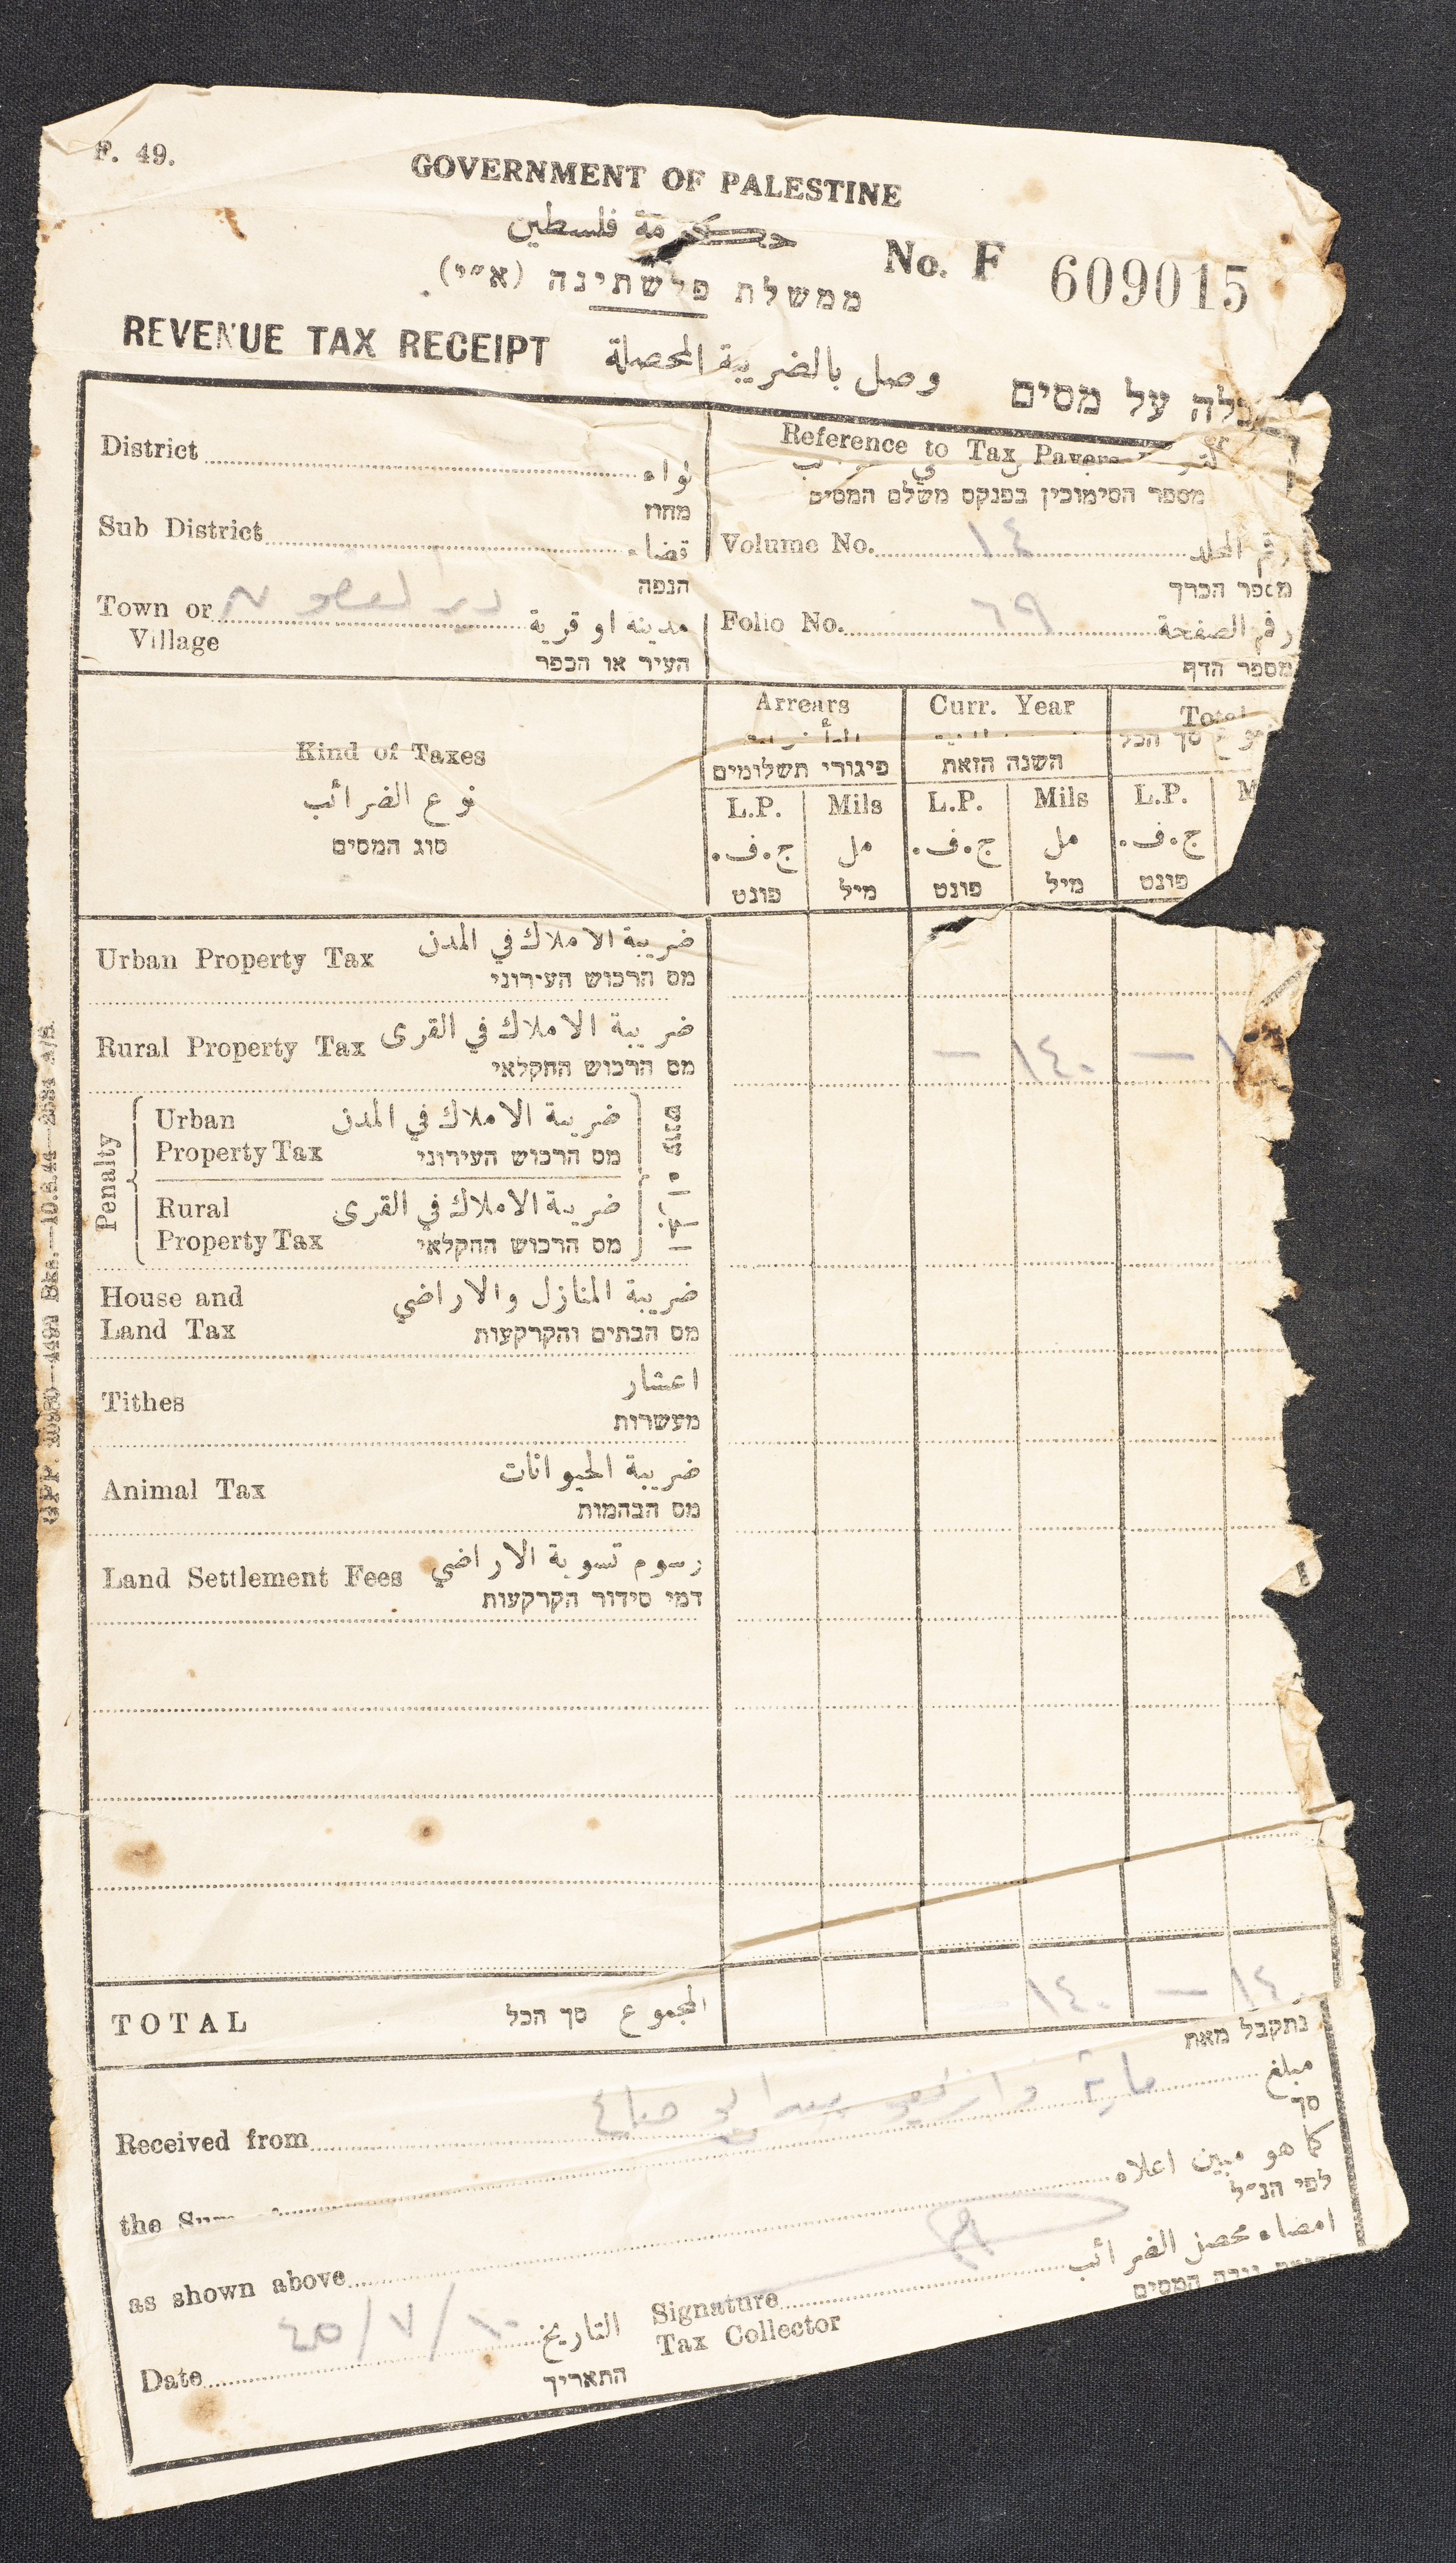 F. 49.
GOVERNMENT OF PALESTINE
حكومة فلسطين
ממשלת פלשתינה (א״י)
No. F 609015
REVENUE TAX RECEIPT وصل بالضريبة المحصلة קבלה על מסים
District لواء
מחוז
Sub District قضاء
הנפה
Town or Village دير مدينة او قرية
העיר או הכפר
Reference to Tax Payers
מספר הסימוכין בפנקס משלם המסים
Volume No. ١٤ رقم المجلد
מספר הכרך
Folio No. ٦٩ رقم الصفحة
מספר הדף
Kind of Taxes
نوع الضرائب
סוג המסים
Arrears Curr. Year Total
פיגורי תשלומים השנה הזאת סך הכל
L.P. Mils L.P. Mils L.P. M
ج.ف. مل ج.ف. مل ج.ف.
פונט מיל פונט מיל פונט
Urban Property Tax ضريبة الاملاك في المدن
מס הרכוש העירוני
Rural Property Tax ضريبة الاملاك في القرى
מס הרכוש החקלאי
— ١٤٠ — ١
Penalty
Urban Property Tax ضريبة الاملاك في المدن
מס הרכוש העירוני
Rural Property Tax ضريبة الاملاك في القرى
מס הרכוש החקלאי
House and Land Tax ضريبة المنازل والاراضي
מס הבתים והקרקעות
Tithes اعشار
מעשרות
Animal Tax ضريبة الحيوانات
מס הבהמות
Land Settlement Fees رسوم تسوية الاراضي
דמי סידור הקרקעות
TOTAL المجموع סך הכל — ١٤٠ — ١٤٠
נתקבל מאת
Received from مبلغ
סך
the Sum of كما هو مبين اعلاه
לפי הנ״ל
as shown above
Signature Tax Collector امضاء محصل الضرائب
המסים
Date ٤٥/٧/١٠ التاريخ
התאריך